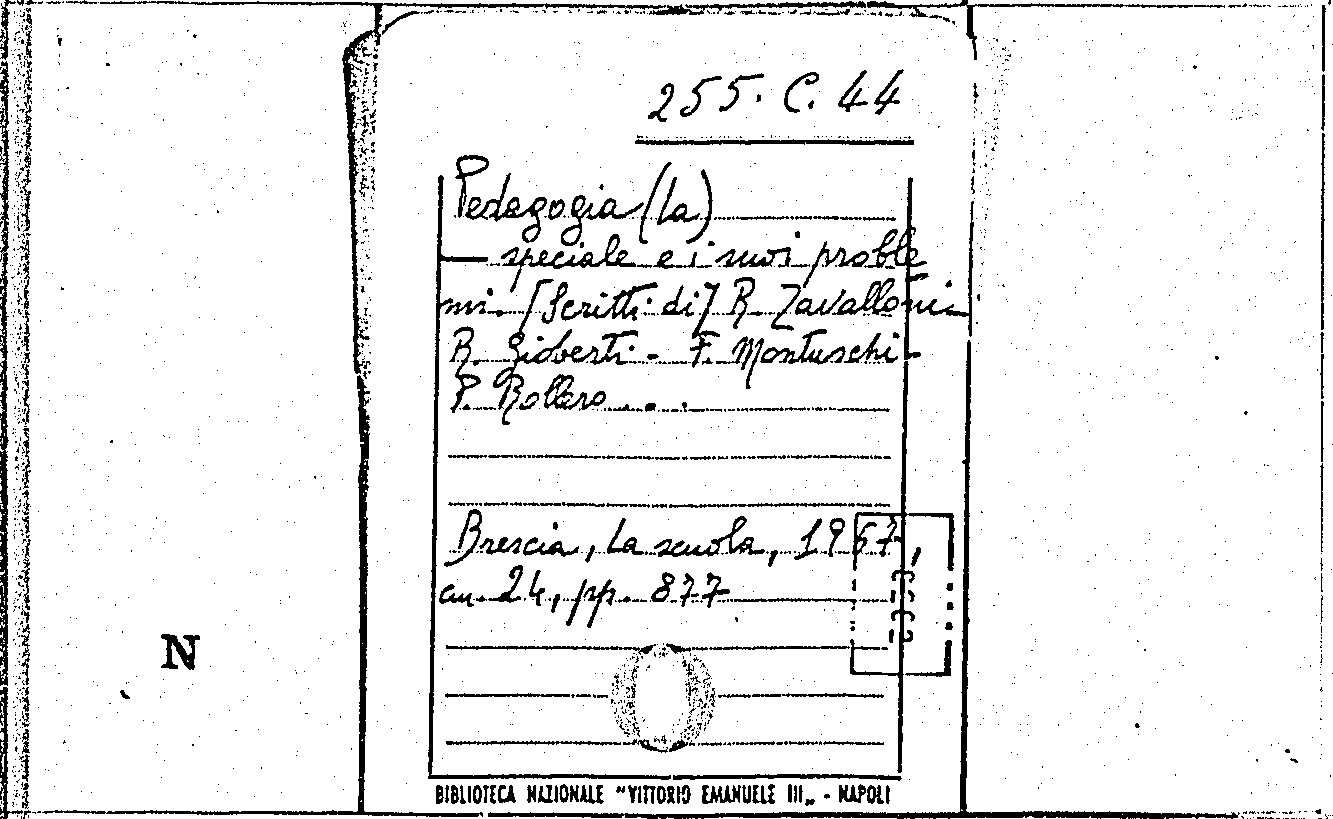 255. C. 44
Pedagogia (La)
— speciale e i suoi proble
mi. [Scritti di] R. Zavalloni -
R. Gioberti - F. Montuschi -
P. Rollero...
Brescia, La scuola, 1967,
cm. 24, pp. 877
N
BIBLIOTECA NAZIONALE "VITTORIO EMANUELE III„ - NAPOLI